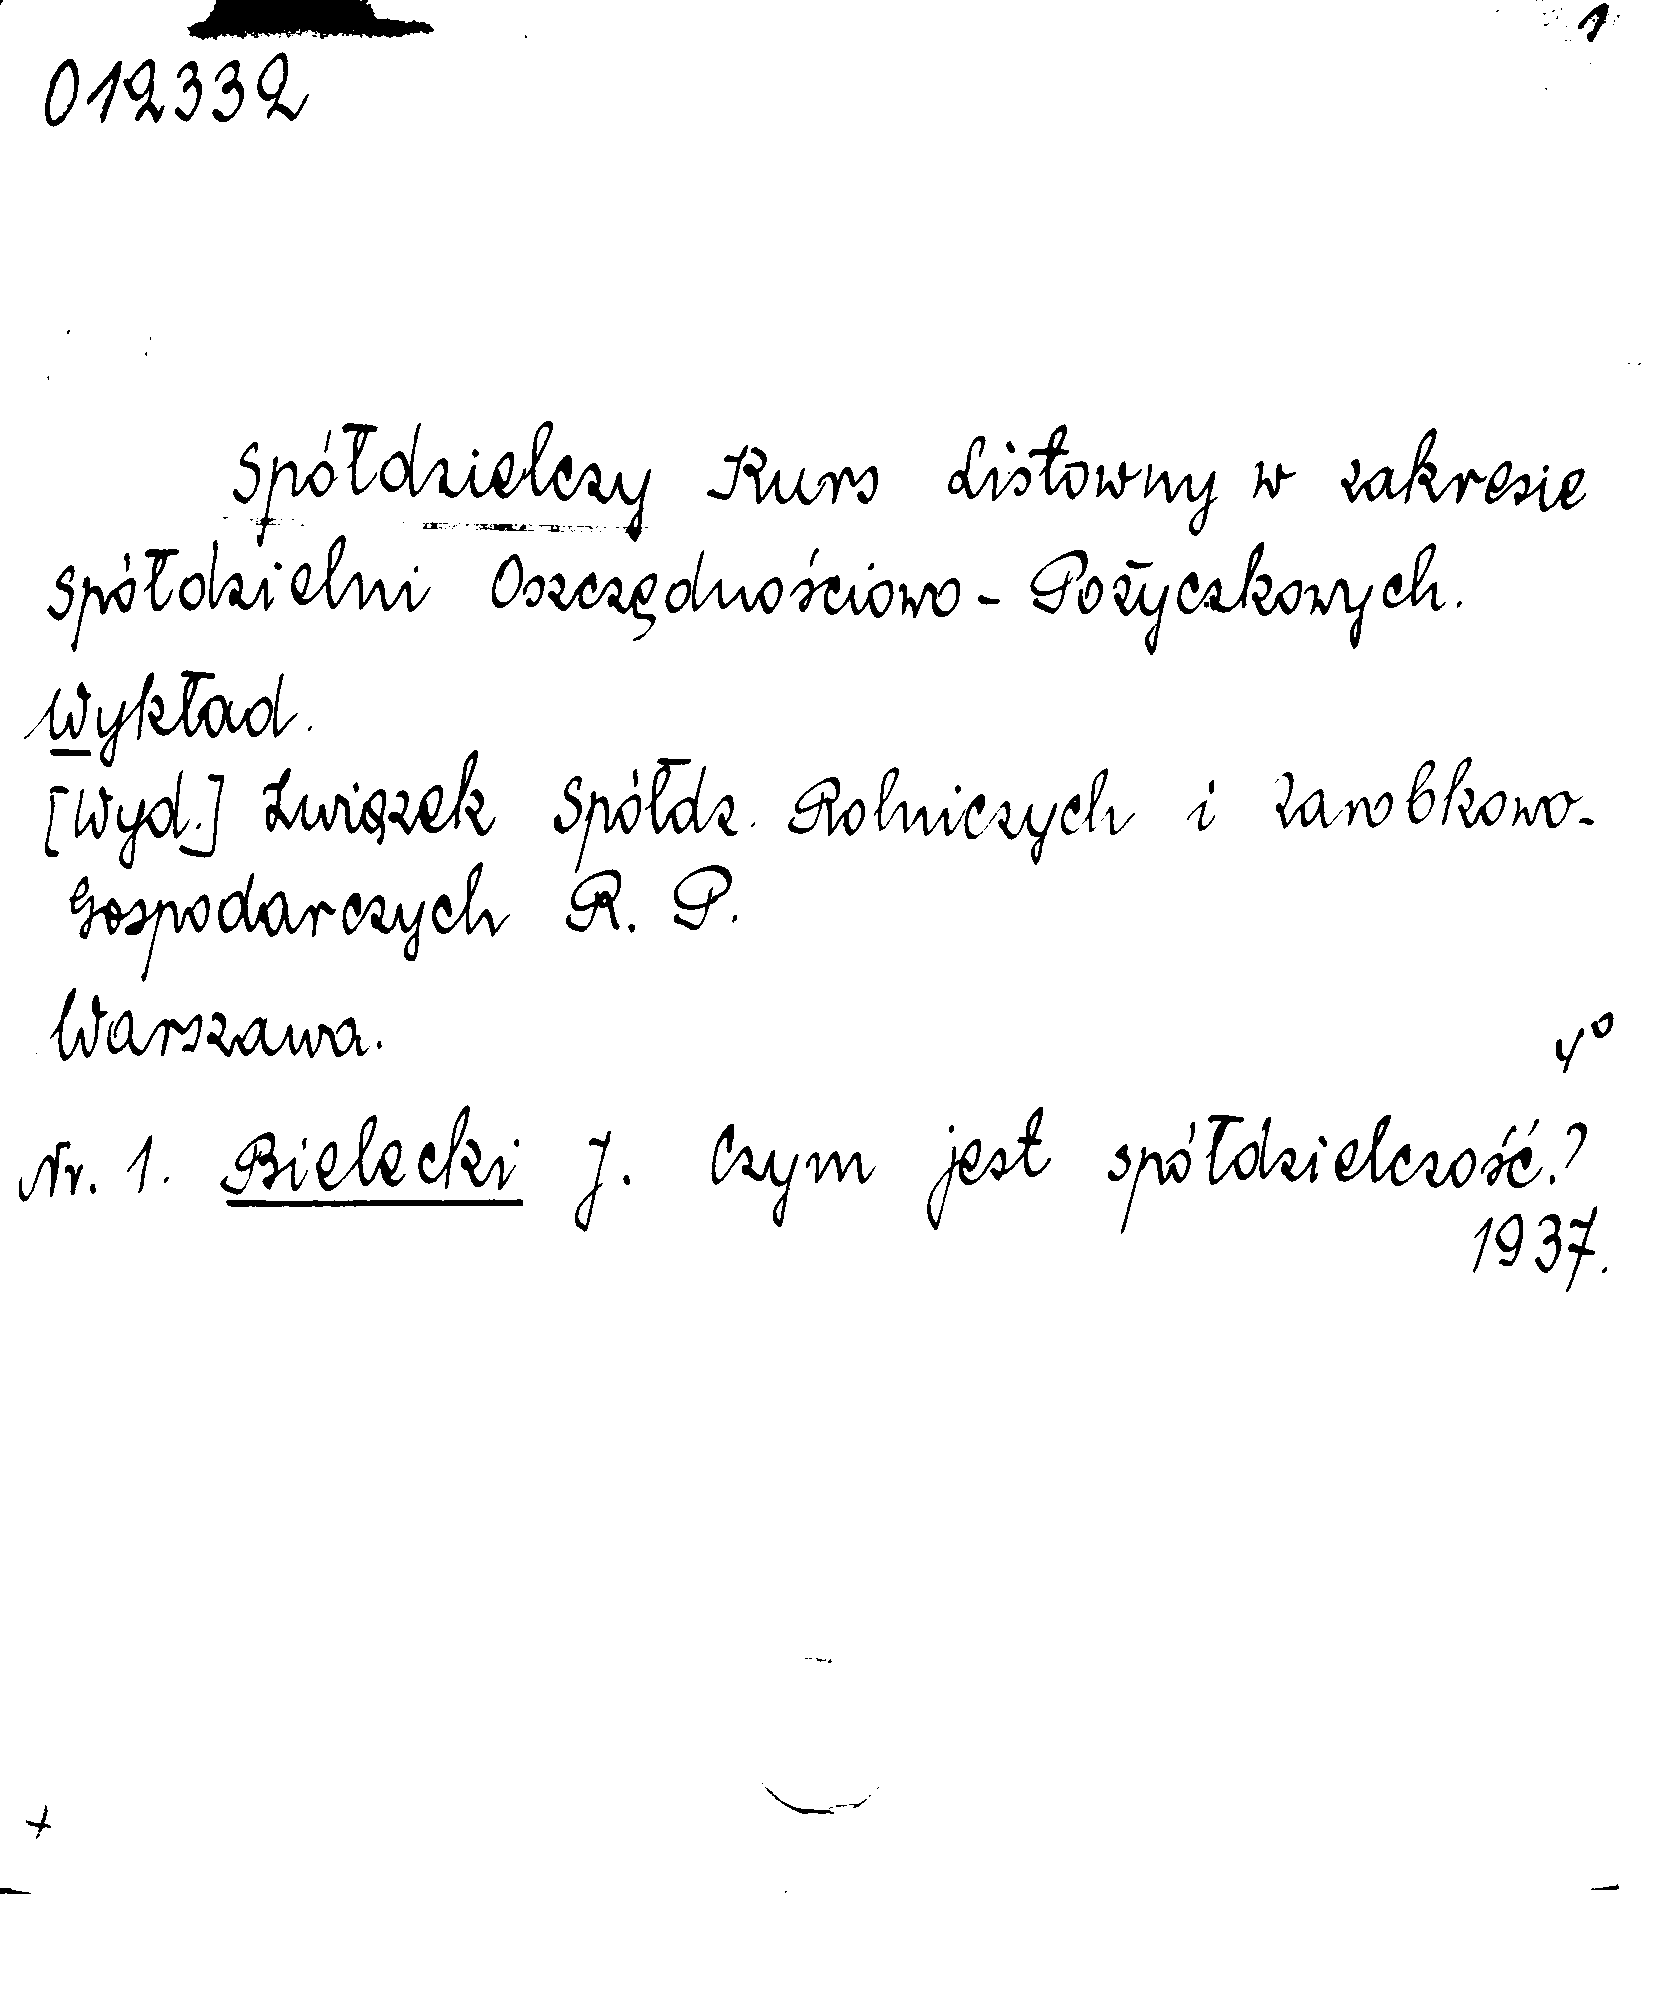 1
012332
Spółdzielczy Kurs Listowny w zakresie
Spółdzielni Oszczędnościowo - Pożyczkowych.
Wykład.
[Wyd.] Związek Spółdz. Rolniczych i Zarobkowo-
Gospodarczych R. P.
Warszawa.
4°
Nr. 1. Bielecki J. Czym jest spółdzielczość.?
1937.
+